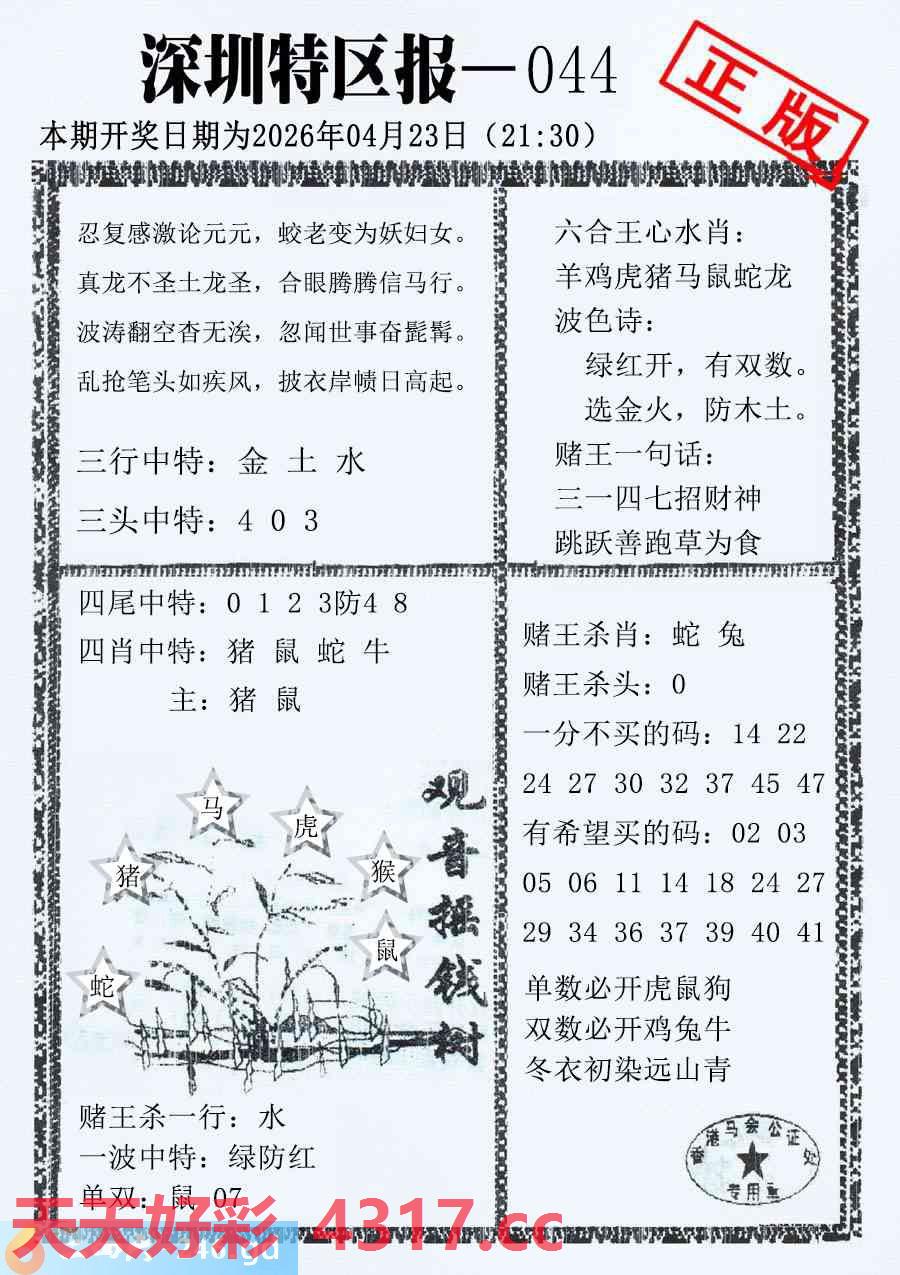 深圳特区报—044
正版
本期开奖日期为2026年04月23日（21:30）
忍复感激论元元，蛟老变为妖妇女。
真龙不圣土龙圣，合眼腾腾信马行。
波涛翻空杳无涘，忽闻世事奋髭髯。
乱抢笔头如疾风，披衣岸帻日高起。
三行中特：金 土 水
三头中特：4 0 3
六合王心水肖：
羊鸡虎猪马鼠蛇龙
波色诗：
绿红开，有双数。
选金火，防木土。
赌王一句话：
三一四七招财神
跳跃善跑草为食
四尾中特：0 1 2 3防4 8
四肖中特：猪 鼠 蛇 牛
主：猪 鼠
马
虎
猪
猴
鼠
蛇
观音摇钱树
赌王杀一行：水
一波中特：绿防红
单双：鼠 07
赌王杀肖：蛇 兔
赌王杀头：0
一分不买的码：14 22
24 27 30 32 37 45 47
有希望买的码：02 03
05 06 11 14 18 24 27
29 34 36 37 39 40 41
单数必开虎鼠狗
双数必开鸡兔牛
冬衣初染远山青
香港马会公证处
专用章
天天好彩 4317.cc